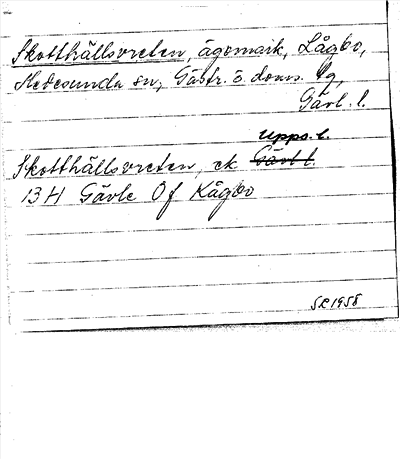 Skotthällsvreten, ägomark, Lågbo,
Hedesunda sn, Gästr. ö. doms. tg,
Gävl. l.
Upps. l.
Skotthällsvreten, ek Gävl l.
13 H Gävle Of Kågbo
SR 1958